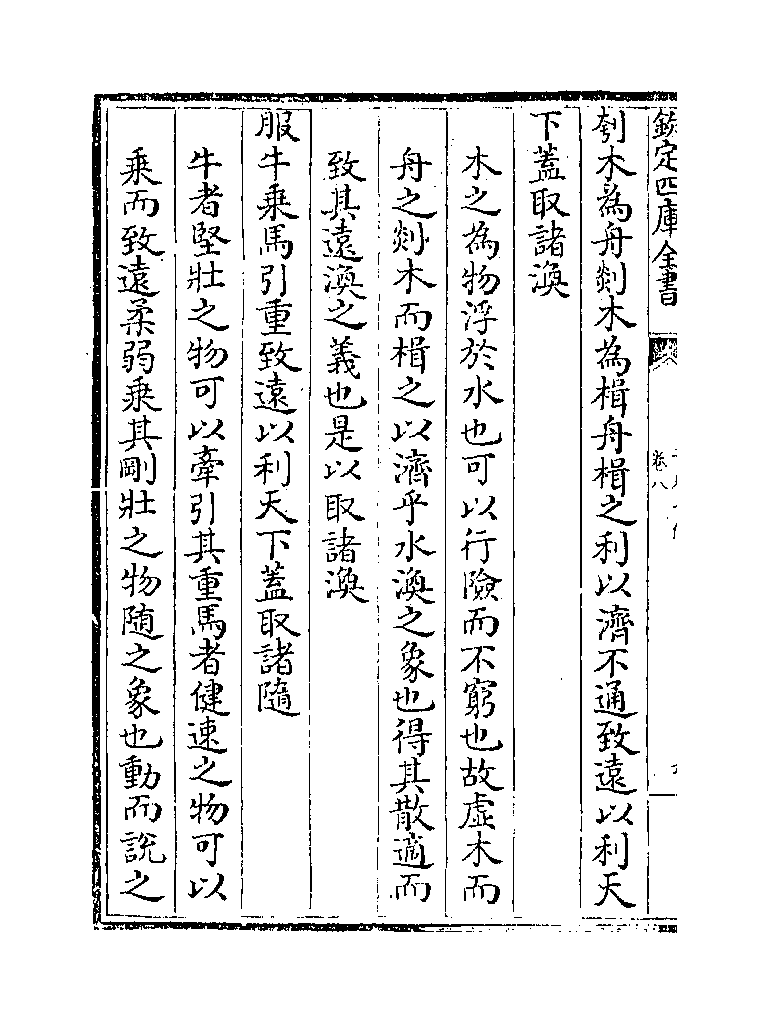 欽定四庫全書
卷八
刳木為舟剡木為楫舟楫之利以濟不通致遠以利天
下蓋取諸渙
木之為物浮於水也可以行險而不窮也故虛木而
舟之剡木而楫之以濟乎水渙之象也得其散適而
致其遠渙之義也是以取諸渙
服牛乘馬引重致遠以利天下蓋取諸隨
牛者堅壯之物可以牽引其重馬者健速之物可以
乘而致遠柔弱乘其剛壯之物隨之象也動而說之